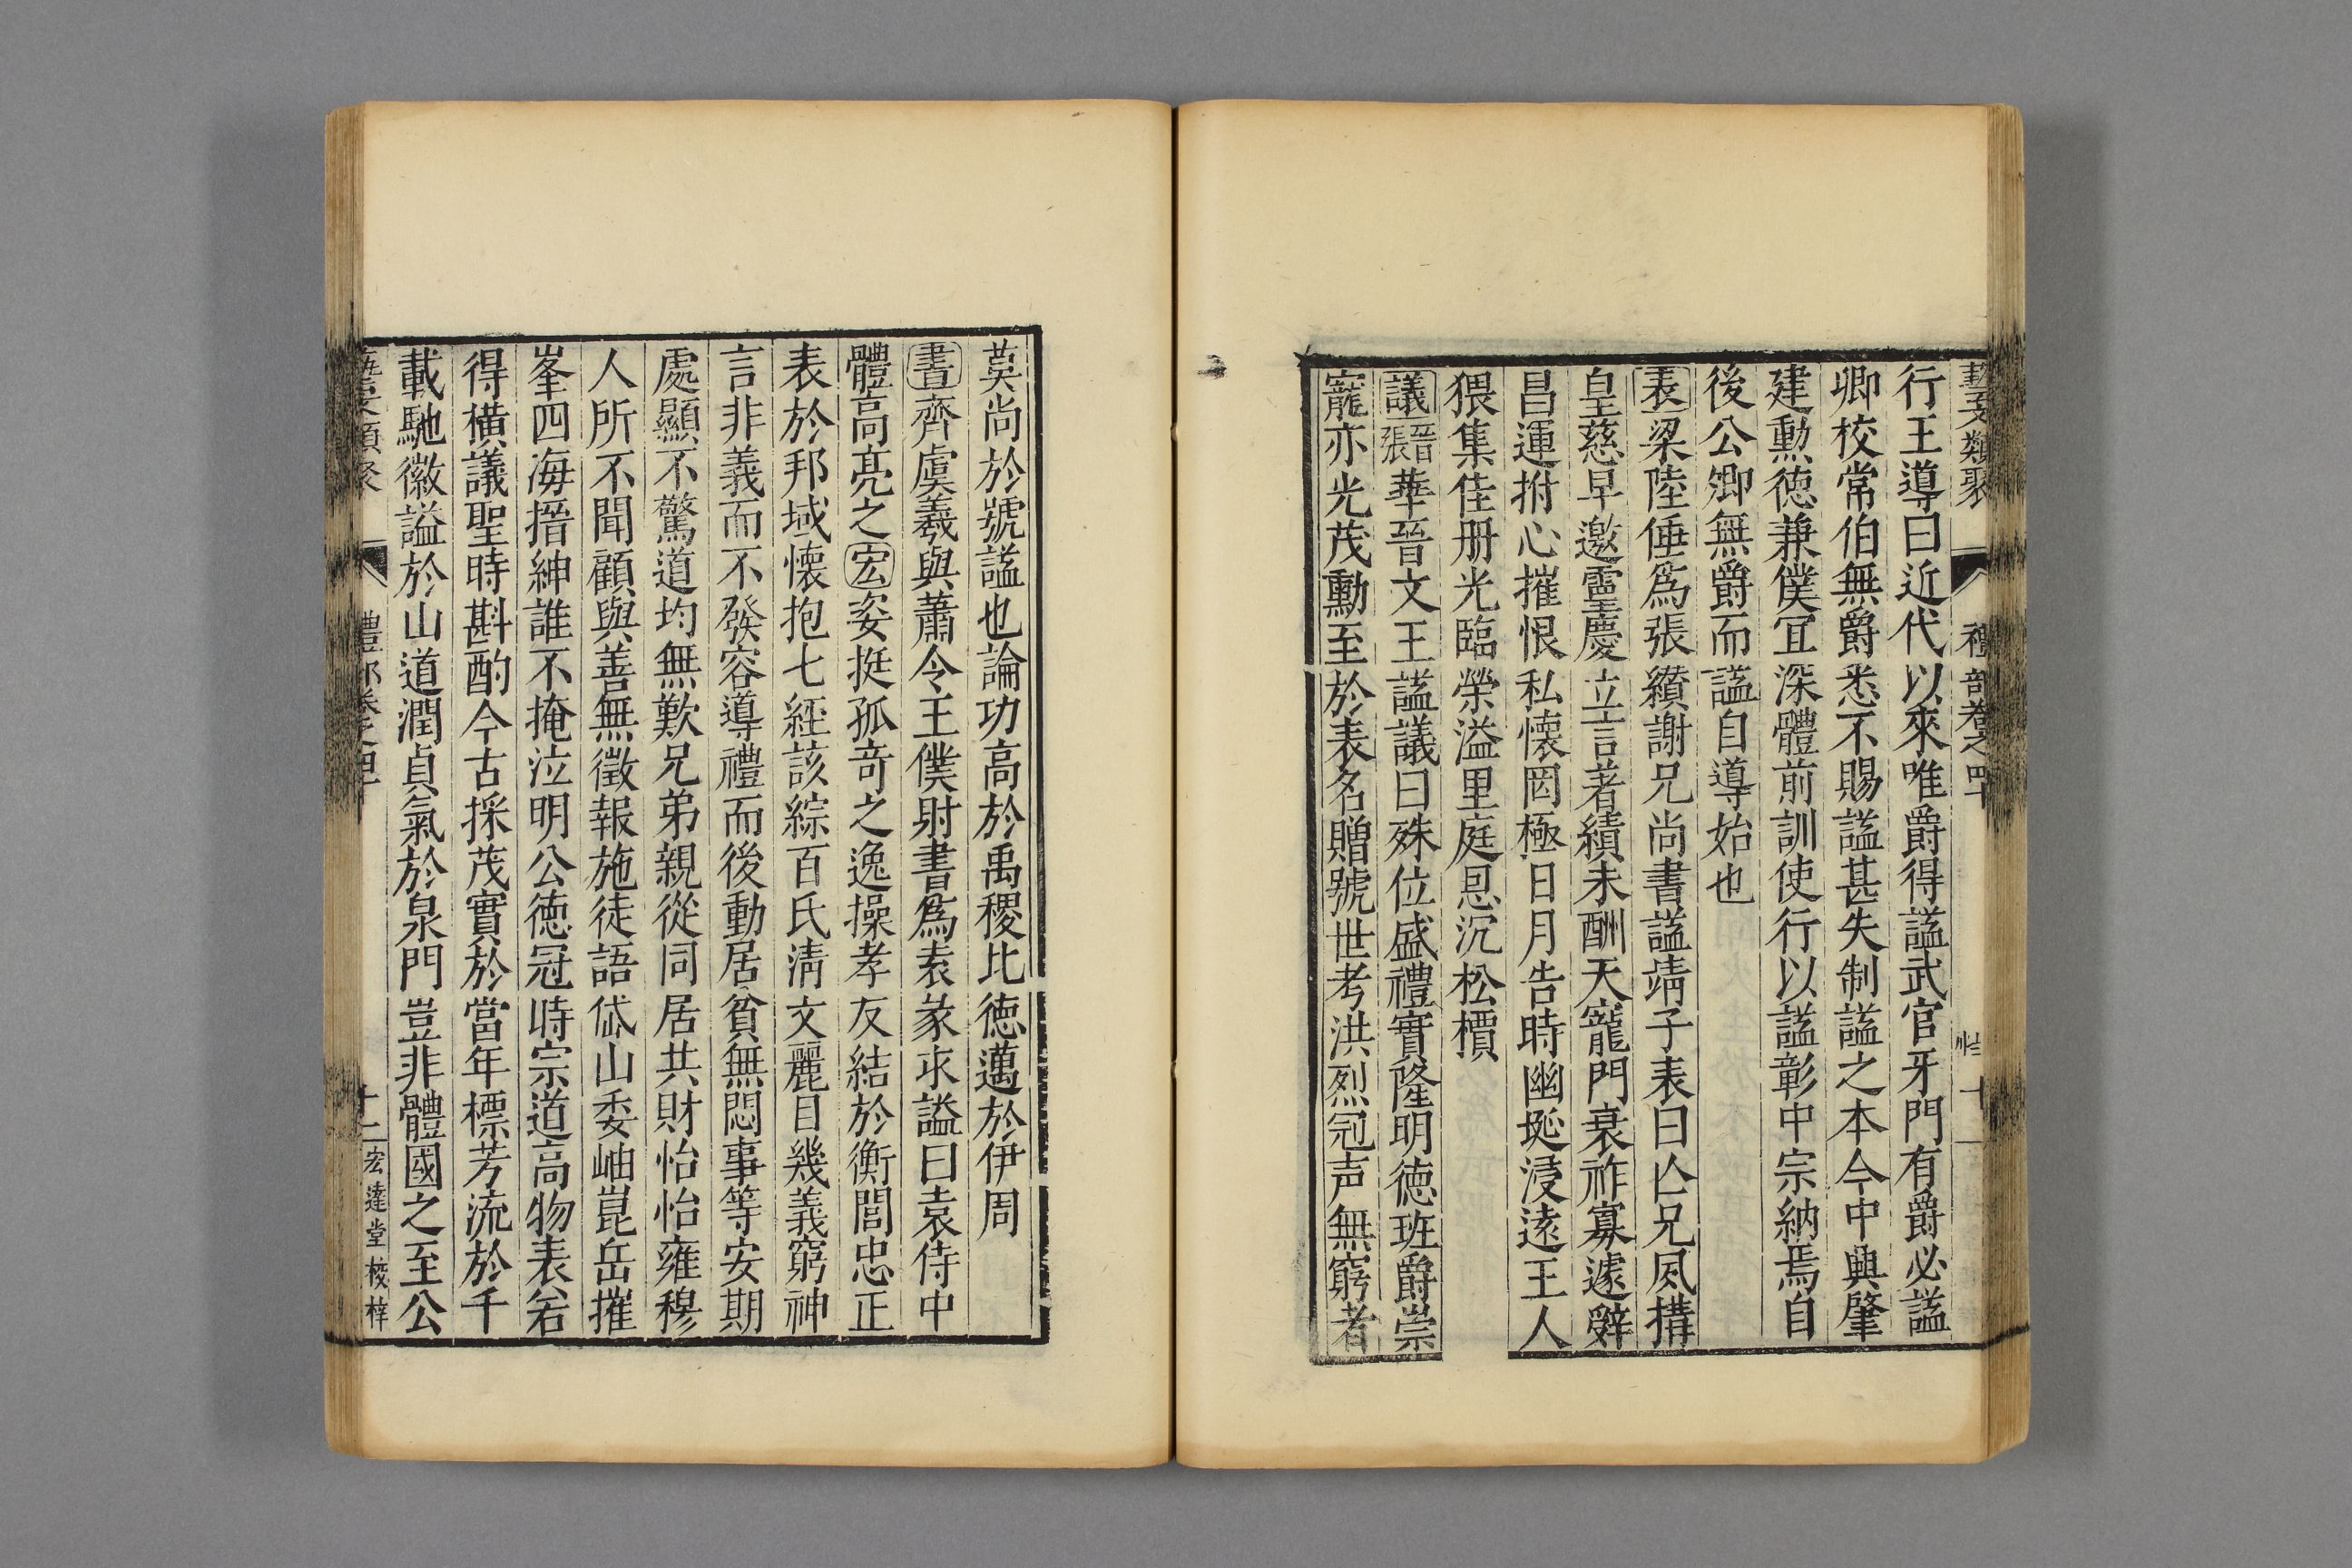 藝文類聚 禮部卷之四十 十一
行王導曰近代以來唯爵得謚武官牙門有爵必謚
卿校常伯無爵悉不賜謚甚失制謚之本今中興肇
建勲徳兼僕冝深體前訓使行以謚彰中宗納焉自
後公卿無爵而謚自導始也
表梁陸倕爲張纘謝兄尚書謚靖子表曰亾兄夙搆
皇慈早邀靈慶立言著績未酬天寵門衰祚寡遽辤
昌運拊心摧恨私懐罔極日月告時幽埏浸遠王人
猥集佳册光臨榮溢里庭恩沉松檟
議晉張華晉文王謚議曰殊位盛禮實隆明徳班爵崇
寵亦光茂勳至於表名贈號世考洪烈冠声無窮者
莫尚於號謚也論功高於禹稷比徳邁於伊周
書齊虞羲與蕭令王僕射書爲袁彖求謚曰袁侍中
體高亮之宏姿挺孤竒之逸操孝友結於衡閭忠正
表於邦域懐抱七經該綜百氏淸文麗目幾義窮神
言非義而不發容導禮而後動居貧無悶事等安期
處顯不驚道均無歎兄弟親從同居共財怡怡雍穆
人所不聞顧與善無徵報施徒語岱山委岫崑岳摧
峯四海搢紳誰不掩泣明公徳冠時宗道高物表若
得橫議聖時斟酌今古採茂實於當年標芳流於千
載馳徽謚於山道潤貞氣於泉門豈非體國之至公
藝文類聚 禮部卷之四十 十二 宏達堂校梓